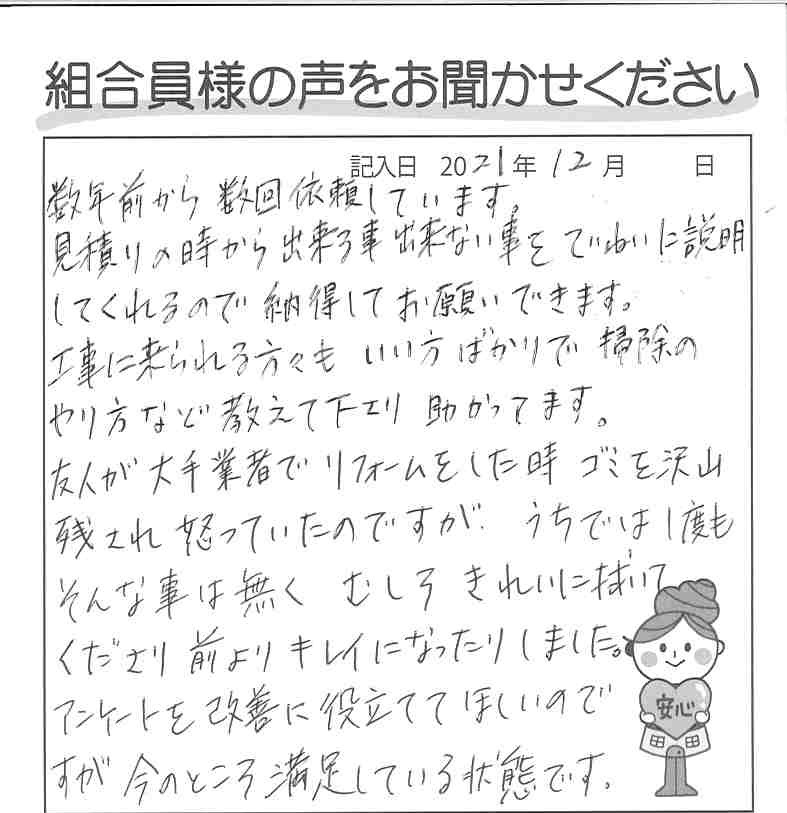 組合員様の声をお聞かせください
記入日 2021年12月 日
数年前から 数回依頼しています。
見積りの時から 出来る事 出来ない事を ていねいに説明
してくれるので 納得して お願いできます。
工事に来られる方々も いい方ばかりで 掃除の
やり方など 教えて下さり 助かってます。
友人が 大手業者で リフォームをした時 ゴミを沢山
残され 怒っていたのですが、 うちでは1度も
そんな事は無く むしろ きれいに拭いて
くださり 前より キレイになったりしました。
アンケートを 改善に 役立ててほしいので
すが 今のところ 満足している状態です。
安心